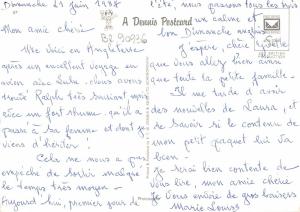 Dimanche 21 Juin 1998
Mon amie chérie
Me voici en Angleterre
après un excellent voyage en
avion avec Luke. Nous avons
trouvé Ralph très souriant mais
avec un fort rhume qu'il a
passé à sa femme et dont je
viens d'hériter !
Cela ne nous a pas
empêché de sortir malgré
le temps très moyen -
Aujourd'hui, premier jour de
A Dennis Postcard
l'été, nous passons tous les trois
un calme et
bon Dimanche anglais
J'espère, chère
que vous allez bien ainsi
que toute la petite famille -
Il me tarde d'avoir
des nouvelles de Laura, et
de savoir si le contenu de
mon petit paquet lui va
bien -
Je serai bien contente de
vous lire, mon amie chérie
Je vous envoie de gros baisers
Marie Louise